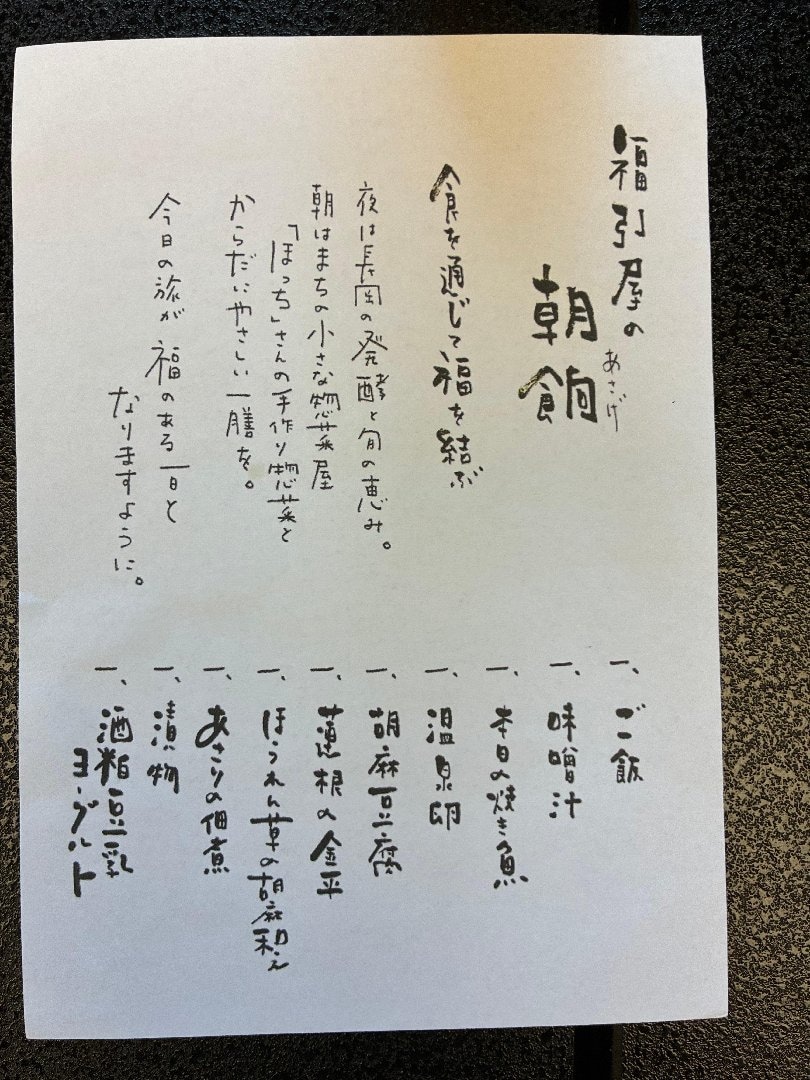 福引屋の
朝餉
あさげ
食を通じて福を結ぶ
夜は長岡の発酵と旬の恵み。
朝はまちの小さな惣菜屋
「ほっち」さんの手作り惣菜と
からだにやさしい一膳を。
今日の旅が福のある一日と
なりますように。
一、ご飯
一、味噌汁
一、本日の焼き魚
一、温泉卵
一、胡麻豆腐
一、蓮根の金平
一、ほうれん草の胡麻和え
一、あさりの佃煮
一、漬物
一、酒粕豆乳
ヨーグルト